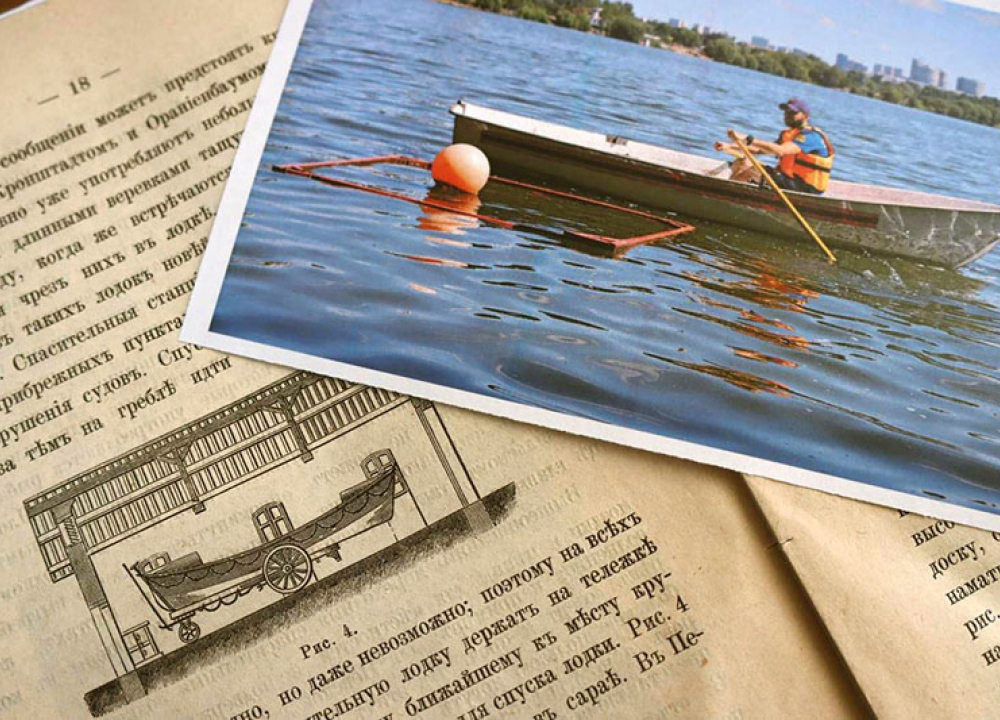 — 18 —
сообщеніи можетъ предстоять
Кронштадтомъ и Ораніенбаумом
вно уже употребляютъ небол
длинными веревками тащ
ду, когда же встрѣчаютс
чрез нихъ въ лодк
ъ такихъ лодокъ новѣ
Спасительныя стан
прибрежныхъ пункта
рушенія судовъ. Спу
за тѣмъ на греблѣ идти
Рис. 4.
но, но даже невозможно; поэтому на всѣхъ
тельную лодку держатъ на тележкѣ
ближайшему къ мѣсту кру-
для спуска лодки. Рис. 4
въ сараѣ. Въ Пе-
высо
доску,
намат
рис.
на